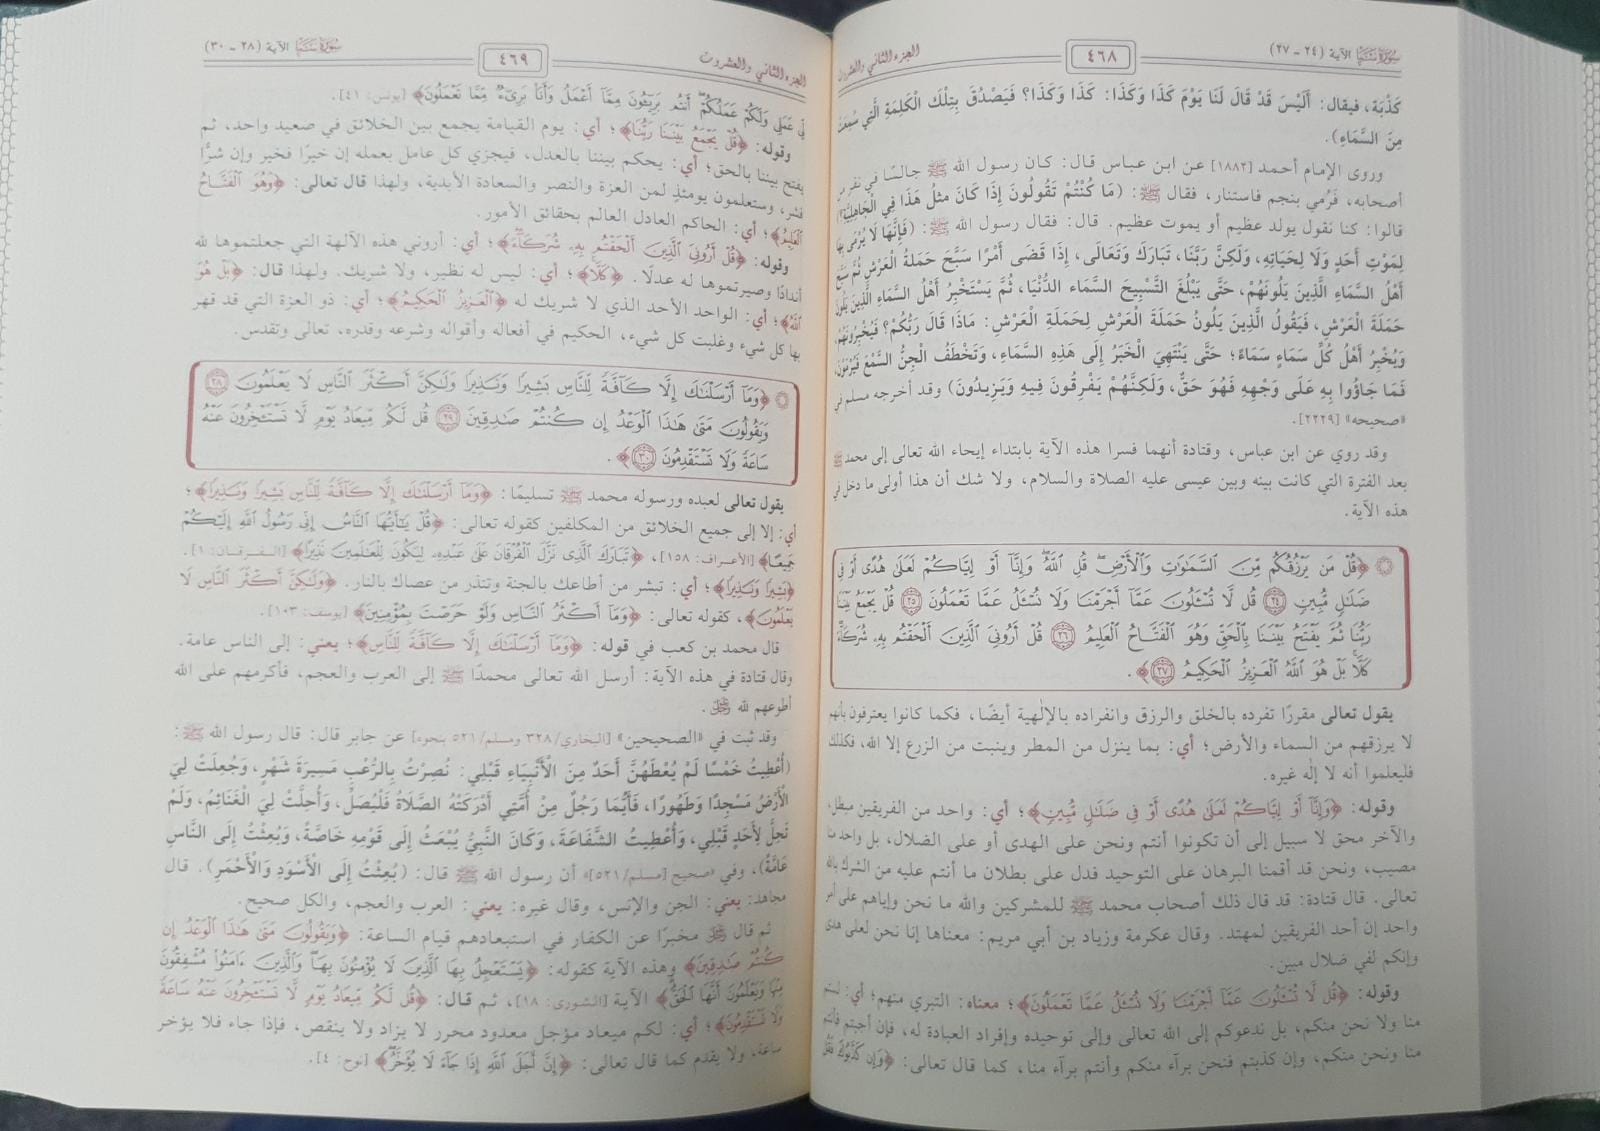 سورة سبأ الآية (٢٤ - ٢٧)
٤٦٨
الجزء الثاني والعشرون
كَذْبَة، فيقال: أَلَيْسَ قَدْ قَالَ لَنَا يَوْمَ كَذَا وَكَذَا: كَذَا وَكَذَا؟ فَيَصْدُقُ بِتِلْكَ الْكَلِمَةِ الَّتِي سُمِعَتْ
مِنَ السَّمَاءِ).
وروى الإمام أحمد [١٨٨٢] عن ابن عباس قال: كان رسول الله ﷺ جالسًا في نفر من
أصحابه، فَرُمي بنجم فاستنار، فقال ﷺ: (مَا كُنْتُمْ تَقُولُونَ إِذَا كَانَ مثلُ هَذَا فِي الْجَاهِلِيَّةِ؟)
قالوا: كنا نقول يولد عظيم أو يموت عظيم. قال: فقال رسول الله ﷺ: (فَإِنَّهَا لَا يُرْمَى بِهَا
لِمَوْتِ أَحَدٍ وَلَا لِحَيَاتِهِ، وَلَكِنَّ رَبَّنَا، تَبَارَكَ وَتَعَالَى، إِذَا قَضَى أَمْرًا سَبَّحَ حَمَلةُ الْعَرْشِ ثُمَّ سَبَّحَ
أَهْلُ السَّمَاءِ الَّذِينَ يَلُونَهُمْ، حَتَّى يَبْلُغَ التَّسْبِيحَ السَّمَاء الدُّنْيَا، ثُمَّ يَسْتَخْبِرُ أَهْلُ السَّمَاءِ الَّذِينَ يَلُونَ
حَمَلَةَ الْعَرْشِ، فَيَقُولُ الَّذِينَ يَلُونُ حَمَلَةَ الْعَرْشِ لِحَمَلَةِ الْعَرْشِ: مَاذَا قَالَ رَبُّكُمْ؟ فَيُخْبِرُونَهُمْ،
وَيُخْبِرُ أَهْلُ كُلِّ سَمَاءٍ سَمَاءً؛ حَتَّى يَنْتَهِيَ الْخَبَرُ إِلَى هَذِهِ السَّمَاءِ، وَتَخْطَفُ الْجِنُّ السَّمْعَ فَيُرْمَوْنَ،
فَمَا جَاؤُوا بِهِ عَلَى وَجْهِهِ فَهُوَ حَقٌّ، وَلَكِنَّهُمْ يَفْرِقُونَ فِيهِ وَيَزِيدُونَ) وقد أخرجه مسلم في
«صحيحه» [٢٢٢٩].
وقد روي عن ابن عباس، وقتادة أنهما فسرا هذه الآية بابتداء إيحاء الله تعالى إلى محمد ﷺ
بعد الفترة التي كانت بينه وبين عيسى عليه الصلاة والسلام، ولا شك أن هذا أولى ما دخل في
هذه الآية.
﴿قُلْ مَن يَرْزُقُكُم مِّنَ السَّمَاوَاتِ وَالْأَرْضِ قُلِ اللَّهُ وَإِنَّا أَوْ إِيَّاكُمْ لَعَلَىٰ هُدًى أَوْ فِي
ضَلَالٍ مُّبِينٍ ٢٤ قُل لَّا تُسْأَلُونَ عَمَّا أَجْرَمْنَا وَلَا نُسْأَلُ عَمَّا تَعْمَلُونَ ٢٥ قُلْ يَجْمَعُ بَيْنَنَا
رَبُّنَا ثُمَّ يَفْتَحُ بَيْنَنَا بِالْحَقِّ وَهُوَ الْفَتَّاحُ الْعَلِيمُ ٢٦ قُلْ أَرُونِيَ الَّذِينَ أَلْحَقْتُم بِهِ شُرَكَاءَ
كَلَّا بَلْ هُوَ اللَّهُ الْعَزِيزُ الْحَكِيمُ ٢٧﴾.
يقول تعالى مقررًا تفرده بالخلق والرزق وانفراده بالإلٰهية أيضًا، فكما كانوا يعترفون بأنهم
لا يرزقهم من السماء والأرض؛ أي: بما ينزل من المطر وينبت من الزرع إلا الله، فكذلك
فليعلموا أنه لا إلٰه غيره.
وقوله: ﴿وَإِنَّا أَوْ إِيَّاكُمْ لَعَلَىٰ هُدًى أَوْ فِي ضَلَالٍ مُّبِينٍ﴾؛ أي: واحد من الفريقين مبطل،
والآخر محق لا سبيل إلى أن تكونوا أنتم ونحن على الهدى أو على الضلال، بل واحد منا
مصيب، ونحن قد أقمنا البرهان على التوحيد فدل على بطلان ما أنتم عليه من الشرك بالله
تعالى. قال قتادة: قد قال ذلك أصحاب محمد ﷺ للمشركين والله ما نحن وإياهم على أمر
واحد إن أحد الفريقين لمهتد. وقال عكرمة وزياد بن أبي مريم: معناها إنا نحن لعلى هدى
وإنكم لفي ضلال مبين.
وقوله: ﴿قُل لَّا تُسْأَلُونَ عَمَّا أَجْرَمْنَا وَلَا نُسْأَلُ عَمَّا تَعْمَلُونَ﴾؛ معناه: التبري منهم؛ أي: لستم
منا ولا نحن منكم، بل ندعوكم إلى الله تعالى وإلى توحيده وإفراد العبادة له، فإن أجبتم فأنتم
منا ونحن منكم، وإن كذبتم فنحن برآء منكم وأنتم برآء منا، كما قال تعالى: ﴿وَإِن كَذَّبُوكَ فَقُل
الجزء الثاني والعشرون
٤٦٩
سورة سبأ الآية (٢٨ - ٣٠)
لِّي عَمَلِي وَلَكُمْ عَمَلُكُمْ أَنتُم بَرِيئُونَ مِمَّا أَعْمَلُ وَأَنَا بَرِيءٌ مِّمَّا تَعْمَلُونَ﴾ [يونس: ٤١].
وقوله: ﴿قُلْ يَجْمَعُ بَيْنَنَا رَبُّنَا﴾؛ أي: يوم القيامة يجمع بين الخلائق في صعيد واحد، ثم
يفتح بيننا بالحق؛ أي: يحكم بيننا بالعدل، فيجزي كل عامل بعمله إن خيرًا فخير وإن شرًّا
فشر، وستعلمون يومئذٍ لمن العزة والنصر والسعادة الأبدية، ولهذا قال تعالى: ﴿وَهُوَ الْفَتَّاحُ
الْعَلِيمُ﴾؛ أي: الحاكم العادل العالم بحقائق الأمور.
وقوله: ﴿قُلْ أَرُونِيَ الَّذِينَ أَلْحَقْتُم بِهِ شُرَكَاءَ﴾؛ أي: أروني هذه الآلهة التي جعلتموها لله
أندادًا وصيرتموها له عدلًا. ﴿كَلَّا﴾؛ أي: ليس له نظير، ولا شريك. ولهذا قال: ﴿بَلْ هُوَ
اللَّهُ﴾؛ أي: الواحد الأحد الذي لا شريك له ﴿الْعَزِيزُ الْحَكِيمُ﴾؛ أي: ذو العزة التي قد قهر
بها كل شيء وغلبت كل شيء، الحكيم في أفعاله وأقواله وشرعه وقدره، تعالى وتقدس.
﴿وَمَا أَرْسَلْنَاكَ إِلَّا كَافَّةً لِّلنَّاسِ بَشِيرًا وَنَذِيرًا وَلَٰكِنَّ أَكْثَرَ النَّاسِ لَا يَعْلَمُونَ ٢٨
وَيَقُولُونَ مَتَىٰ هَٰذَا الْوَعْدُ إِن كُنتُمْ صَادِقِينَ ٢٩ قُل لَّكُم مِّيعَادُ يَوْمٍ لَّا تَسْتَأْخِرُونَ عَنْهُ
سَاعَةً وَلَا تَسْتَقْدِمُونَ ٣٠﴾.
يقول تعالى لعبده ورسوله محمد ﷺ تسليمًا: ﴿وَمَا أَرْسَلْنَاكَ إِلَّا كَافَّةً لِّلنَّاسِ بَشِيرًا وَنَذِيرًا﴾؛
أي: إلا إلى جميع الخلائق من المكلفين كقوله تعالى: ﴿قُلْ يَا أَيُّهَا النَّاسُ إِنِّي رَسُولُ اللَّهِ إِلَيْكُمْ
جَمِيعًا﴾ [الأعراف: ١٥٨]، ﴿تَبَارَكَ الَّذِي نَزَّلَ الْفُرْقَانَ عَلَىٰ عَبْدِهِ لِيَكُونَ لِلْعَالَمِينَ نَذِيرًا﴾ [الفرقان: ١].
﴿بَشِيرًا وَنَذِيرًا﴾؛ أي: تبشر من أطاعك بالجنة وتنذر من عصاك بالنار. ﴿وَلَٰكِنَّ أَكْثَرَ النَّاسِ لَا
يَعْلَمُونَ﴾، كقوله تعالى: ﴿وَمَا أَكْثَرُ النَّاسِ وَلَوْ حَرَصْتَ بِمُؤْمِنِينَ﴾ [يوسف: ١٠٣].
قال محمد بن كعب في قوله: ﴿وَمَا أَرْسَلْنَاكَ إِلَّا كَافَّةً لِّلنَّاسِ﴾؛ يعني: إلى الناس عامة.
وقال قتادة في هذه الآية: أرسل الله تعالى محمدًا ﷺ إلى العرب والعجم، فأكرمهم على الله
أطوعهم لله ﷻ.
وقد ثبت في «الصحيحين» [البخاري/ ٣٢٨ ومسلم/ ٥٢١ بنحوه] عن جابر قال: قال رسول الله ﷺ:
(أُعْطِيتُ خَمْسًا لَمْ يُعْطَهُنَّ أَحَدٌ مِنَ الْأَنْبِيَاءِ قَبْلِي: نُصِرْتُ بِالرُّعْبِ مَسِيرَةَ شَهْرٍ، وَجُعِلَتْ لِيَ
الْأَرْضُ مَسْجِدًا وَطَهُورًا، فَأَيُّمَا رَجُلٌ مِنْ أُمَّتِي أَدْرَكَتْهُ الصَّلَاةُ فَلْيُصَلِّ، وَأُحِلَّتْ لِيَ الْغَنَائِمُ، وَلَمْ
تَحِلَّ لِأَحَدٍ قَبْلِي، وَأُعْطِيتُ الشَّفَاعَةَ، وَكَانَ النَّبِيُّ يُبْعَثُ إِلَى قَوْمِهِ خَاصَّةً، وَبُعِثْتُ إِلَى النَّاسِ
عَامَّةً)، وفي «صحيح [مسلم/ ٥٢١]» أن رسول الله ﷺ قال: (بُعِثْتُ إِلَى الْأَسْوَدِ وَالْأَحْمَرِ). قال
مجاهد: يعني: الجن والإنس، وقال غيره: يعني: العرب والعجم، والكل صحيح.
ثم قال ﷻ مخبرًا عن الكفار في استبعادهم قيام الساعة: ﴿وَيَقُولُونَ مَتَىٰ هَٰذَا الْوَعْدُ إِن
كُنتُمْ صَادِقِينَ﴾ وهذه الآية كقوله: ﴿يَسْتَعْجِلُ بِهَا الَّذِينَ لَا يُؤْمِنُونَ بِهَا وَالَّذِينَ آمَنُوا مُشْفِقُونَ
مِنْهَا وَيَعْلَمُونَ أَنَّهَا الْحَقُّ﴾ الآية [الشورى: ١٨]، ثم قال: ﴿قُل لَّكُم مِّيعَادُ يَوْمٍ لَّا تَسْتَأْخِرُونَ عَنْهُ سَاعَةً
وَلَا تَسْتَقْدِمُونَ﴾؛ أي: لكم ميعاد مؤجل معدود محرر لا يزاد ولا ينقص، فإذا جاء فلا يؤخر
ساعة، ولا يقدم كما قال تعالى: ﴿إِنَّ أَجَلَ اللَّهِ إِذَا جَاءَ لَا يُؤَخَّرُ﴾ [نوح: ٤].